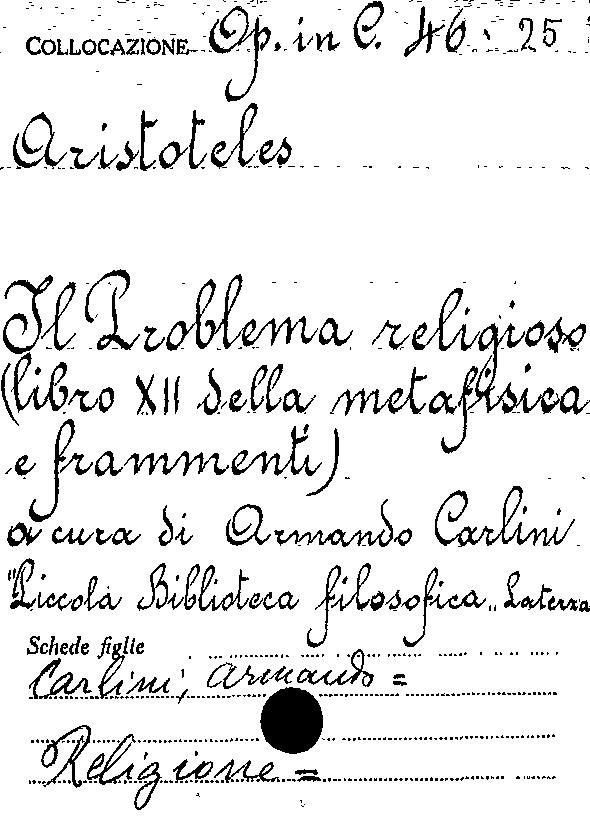 COLLOCAZIONE Op. in C. 46. 25
Aristoteles
Il Problema religioso
(libro XII della metafisica
e frammenti)
a cura di Armando Carlini
"Piccola Biblioteca filosofica" Laterza
Schede figlie
Carlini, Armando =
Religione =